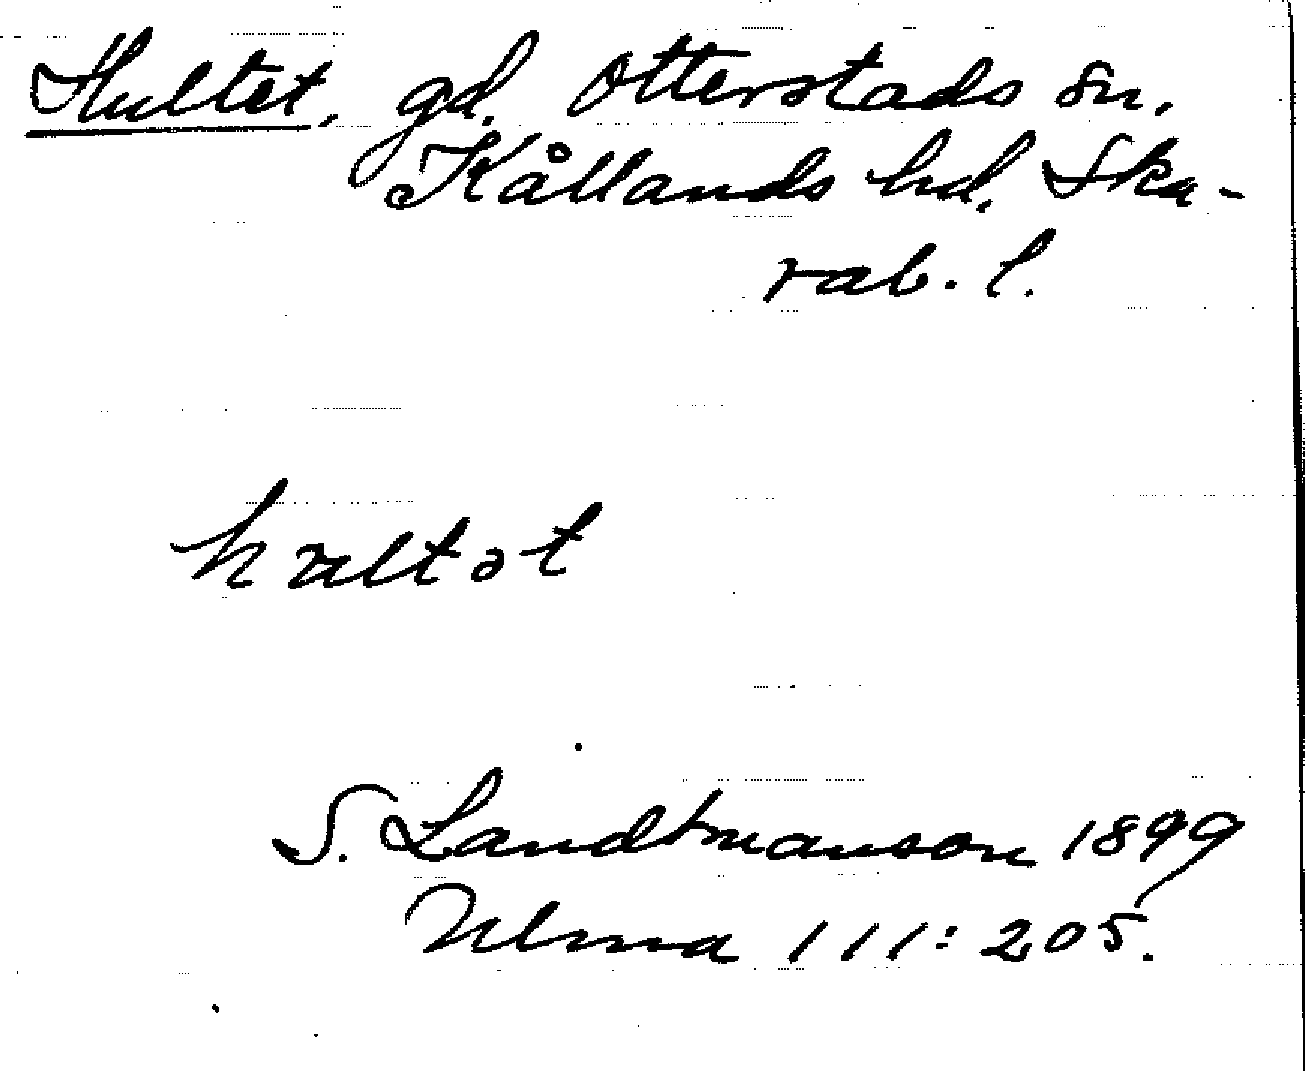 Hultet, gd. Otterstads sn,
Kållands hd. Ska-
rab. l.
hultət
S. Landtmanson 1899
Ulma 111:205.